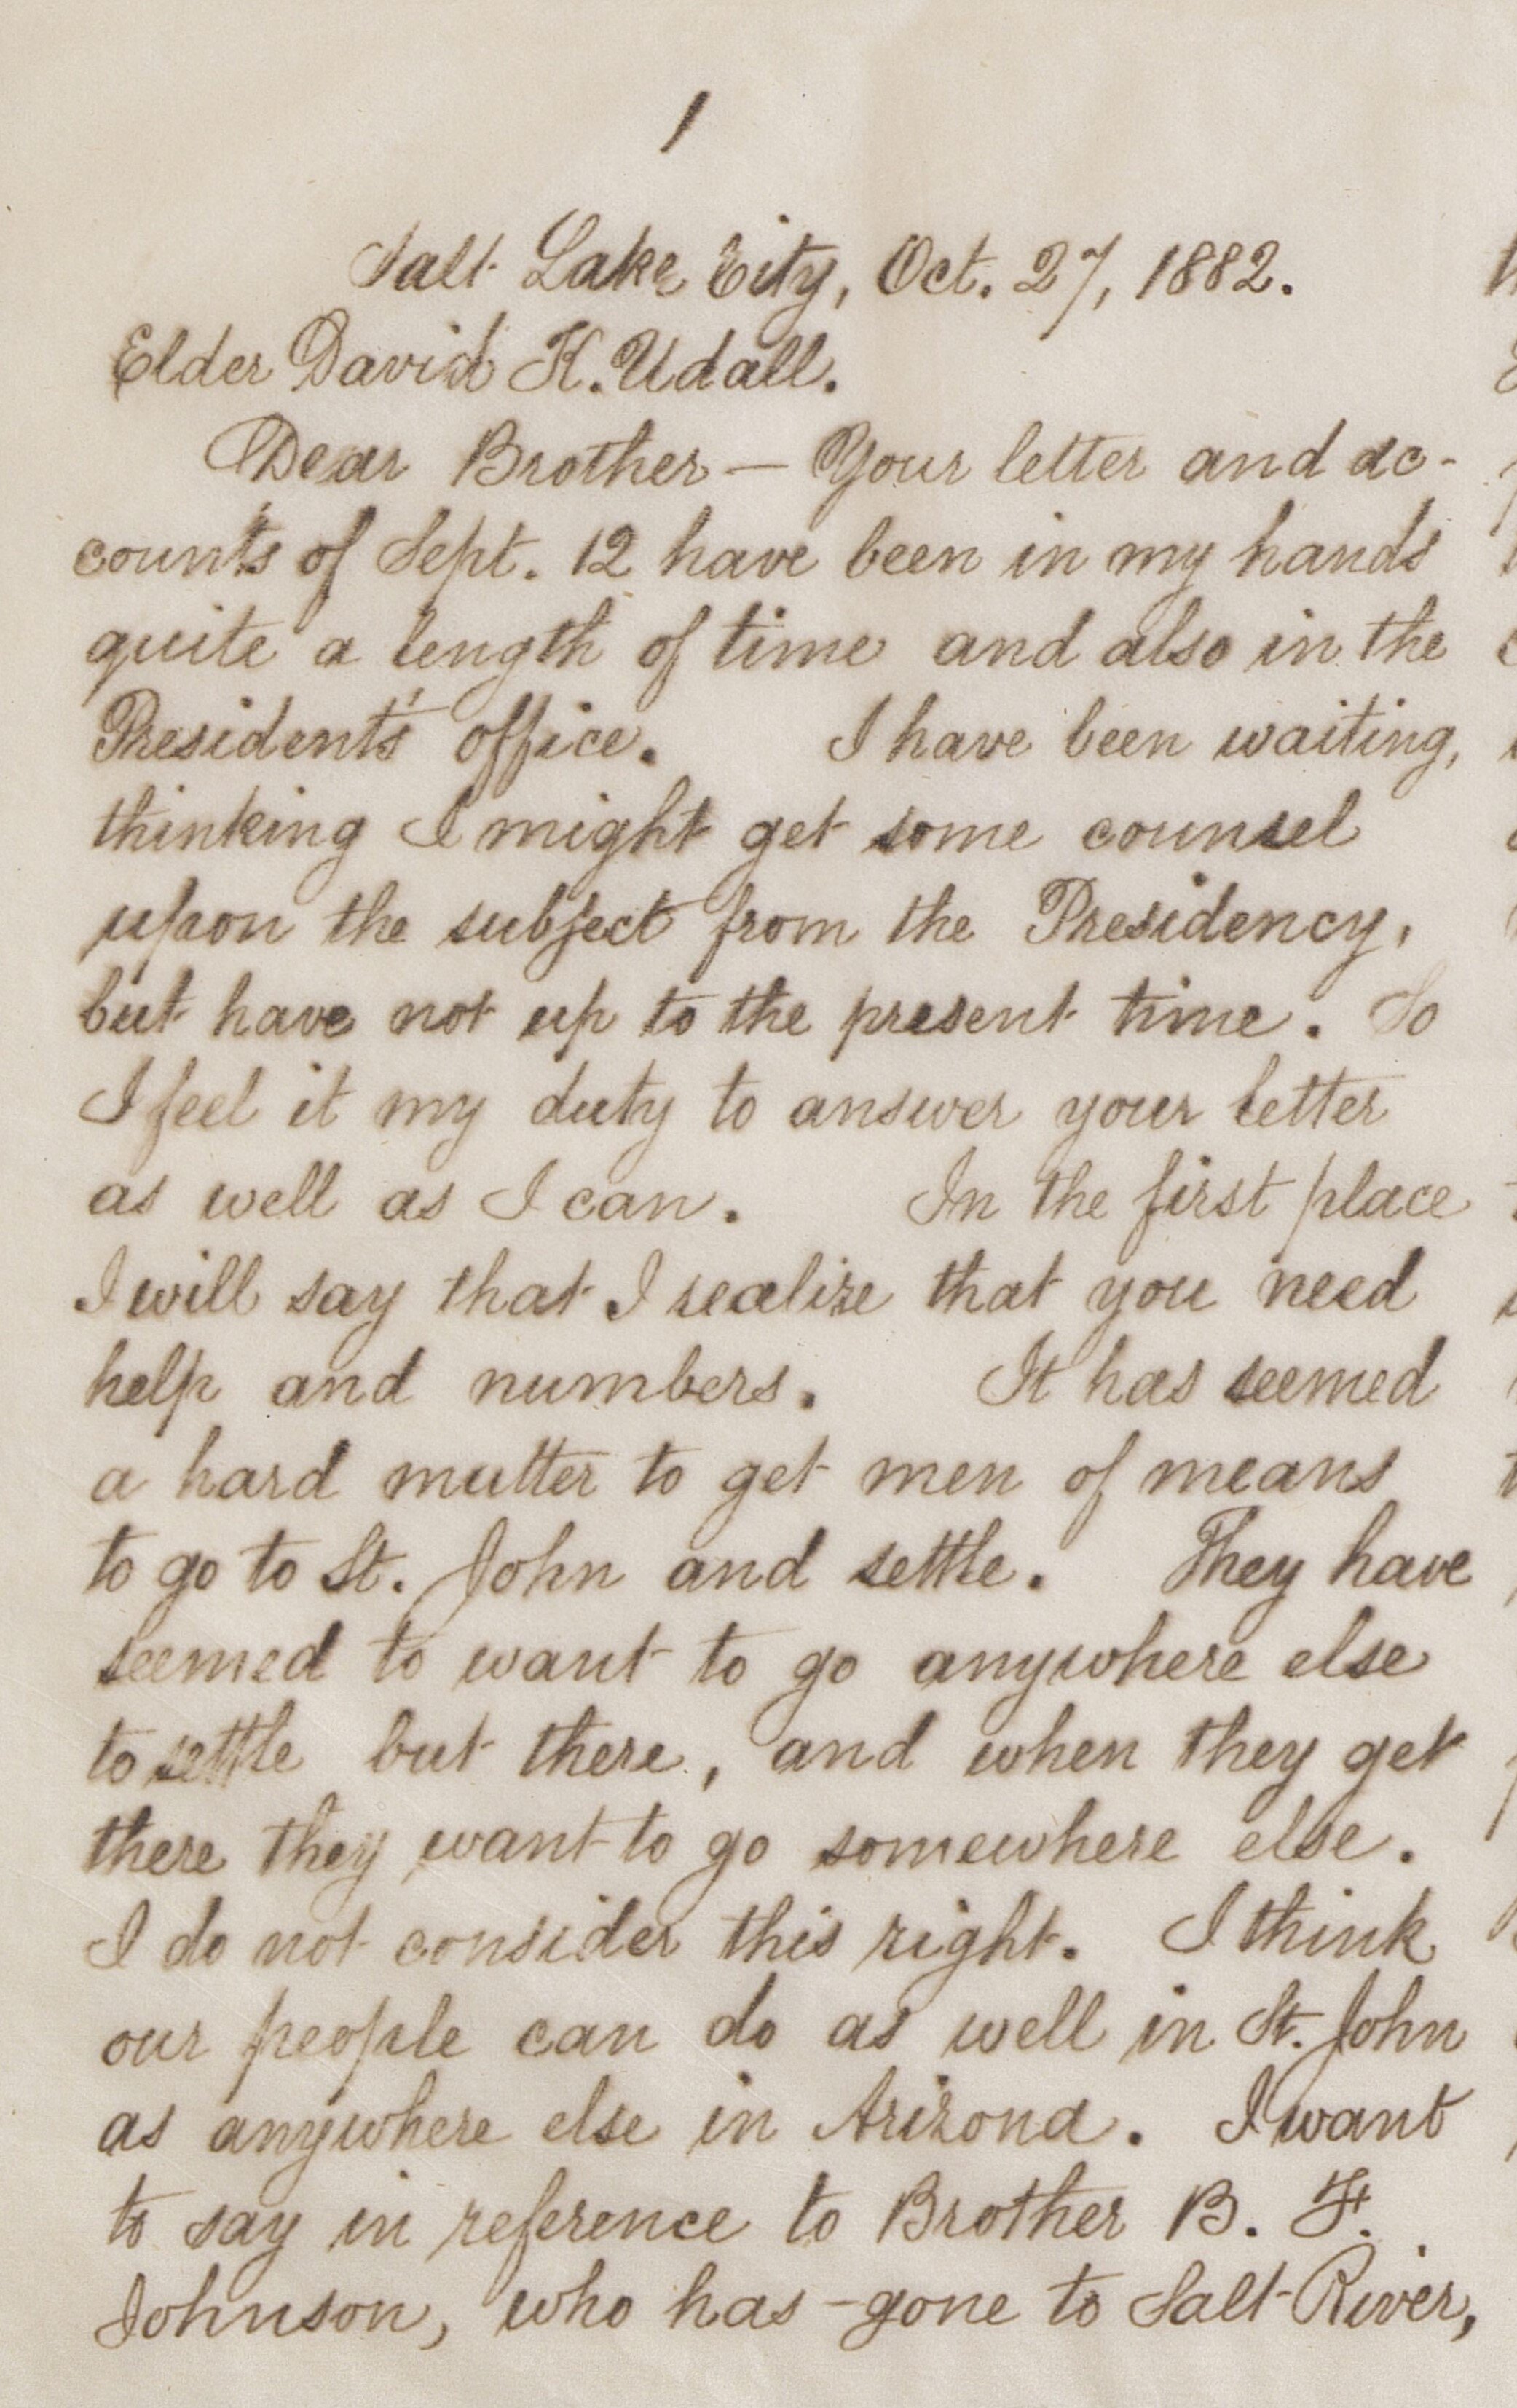 1
Salt Lake City, Oct. 27, 1882.
Elder David K. Udall.
Dear Brother — Your letter and ac-
counts of Sept. 12 have been in my hands
quite a length of time and also in the
President's office. I have been waiting,
thinking I might get some counsel
upon the subject from the Presidency,
but have not up to the present time. So
I feel it my duty to answer your letter
as well as I can. In the first place
I will say that I realize that you need
help and numbers. It has seemed
a hard matter to get men of means
to go to St. John and settle. They have
seemed to want to go anywhere else
to settle but there, and when they get
there they want to go somewhere else.
I do not consider this right. I think
our people can do as well in St. John
as anywhere else in Arizona. I want
to say in reference to Brother B. F.
Johnson, who has gone to Salt River,